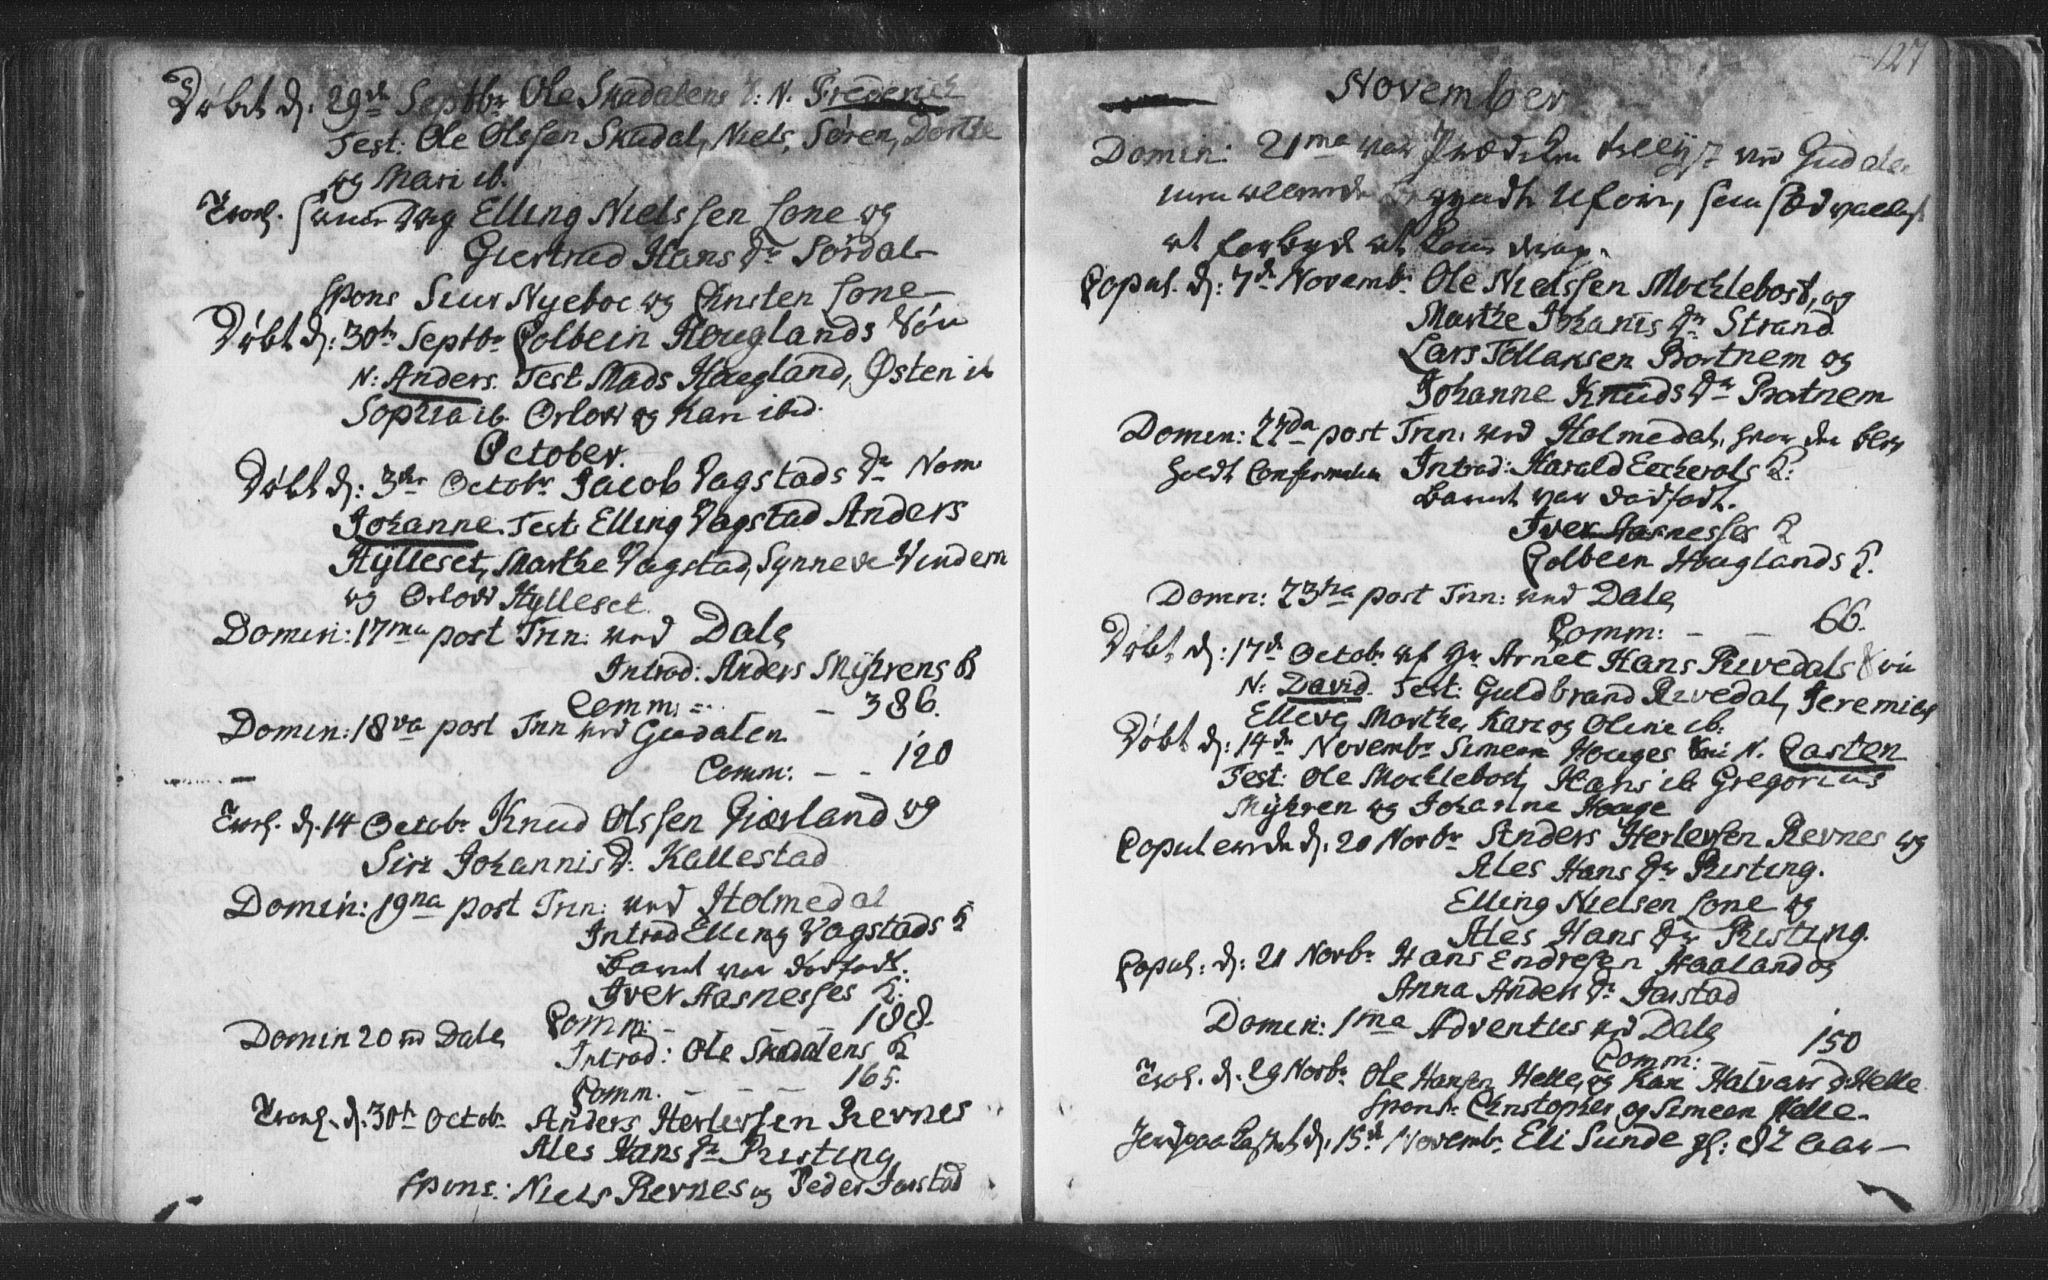 Døbt d: 29de Septbr Ole Skadalens S: N. Frederich
Test: Ole Olssen Skadal, Niels, Søren, Dorthe
og Mari ib.
Trol. samme Dag Elling Nielssen Lone og
Giertrud Hans Dr Sørdal
spons Siur Nyeboe og Christen Lone
Døbt d: 30te Septbr Colbein Houglands Søn
N: Anders. Test Mads Hougland, Østen ib
Sophia ib. Orlow og Kari ibid.
October.
Døbt d: 3die Octobr Jacob Vagstads Dr Nom
Johanne. Test: Elling Vagstad Anders
Hylleset, Marthe Vagstad, Synneve Vindem
og Orlow Hylleset.
Domin: 17ma post Trin: ved Dale
Introd: Anders Myhrens K
Comm: - 386.
Domin: 18va post Trin ved Gudalen
Comm: - - 120
Trol. d. 14 Octobr Knud Olssen Giærland og
Siri Johannis D. Kallestad
Domin: 19na post Trin: ved Holmedal
Introd Elling Vagstads K
Barnet var dødfødt.
Iver Aasnesses K.
Comm: - - - 188.
Domin 20 ved Dale
Introd: Ole Skadalens K
Comm. - - - 165.
Trol. d: 30te Octobr Anders Herlefsen Revnes
Ales Hans Dr Risting
Spons: Niels Revnes og Peder Jarstad
127
November
Domin: 21ma var Prædiken ved Gudalen
men allerede begyndte Ufoer, som sædvanligst
at forbyde at komme derop.
Copul. d: 7de Novembr Ole Nielssen Mochlebost, og
Marthe Johanis Dr Strand
Lars Tollaksen Bortnem og
Johanne Knuds Dr Bortnem
Domin: 22da post Trin: ved Holmedal, hvor der blev
holdt Confirmation Introd: Harald Eccherols K:
Barnet var dødfødt.
Iver Aasnesses K
Colbeen Houglands K.
Domin: 23tia post Trin: ved Dale
Comm: - - 66.
Døbt d: 17de Octobr af Hr Arnet Hans Rivedals Søn
N: David. Test: Guldbrand Rivedal, Jeremias
Elleve, Marthe, Kari og Oline ib.
Døbt d: 14de Novembr Simeon Houges Søn N. Casten
Test: Ole Mochlebost, Hans ib Gregorius
Myhren og Johanne Houge
Copulerede d. 20 Novbr Anders Herlefsen Revnes og
Ales Hans Dr Risting.
Elling Nielsen Lone og
Ales Hans Dr Risting.
Copul: d: 21 Novbr Hans Endresen Haaland og
Anna Anders Dr Jarstad
Domin: 1ma Adventus ved Dale
Comm: - - 150
Trol. d. 29 Novbr Ole Hansen Helle og Kari Halvars D: Helle
spons: Christopher og Simeon Helle.
Jordpaakastet d: 15de Novembr Eli Sunde gl: 82 aar